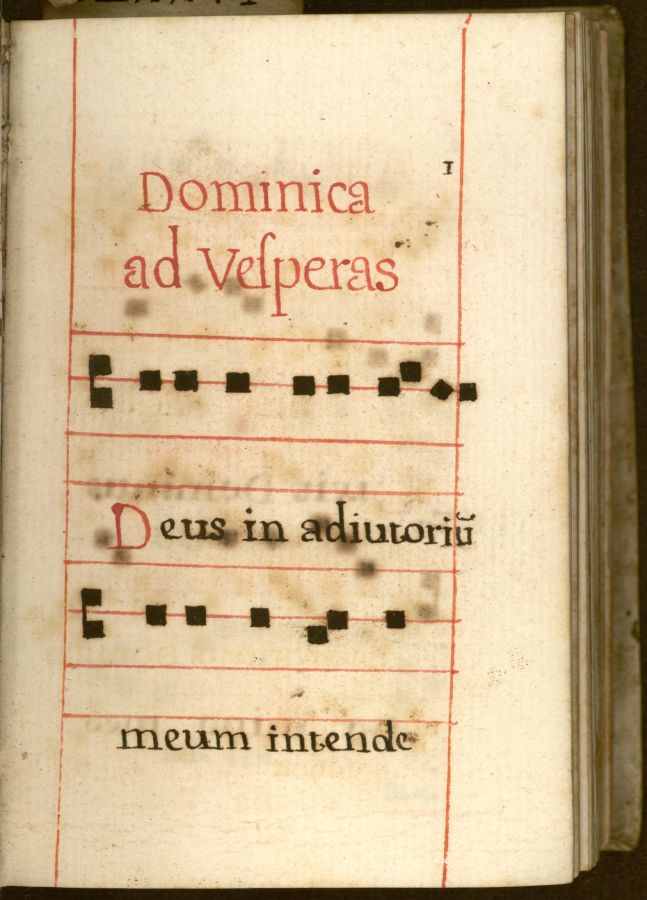 1
Dominica
ad Veſperas
Deus in adiutoriū
meum intende